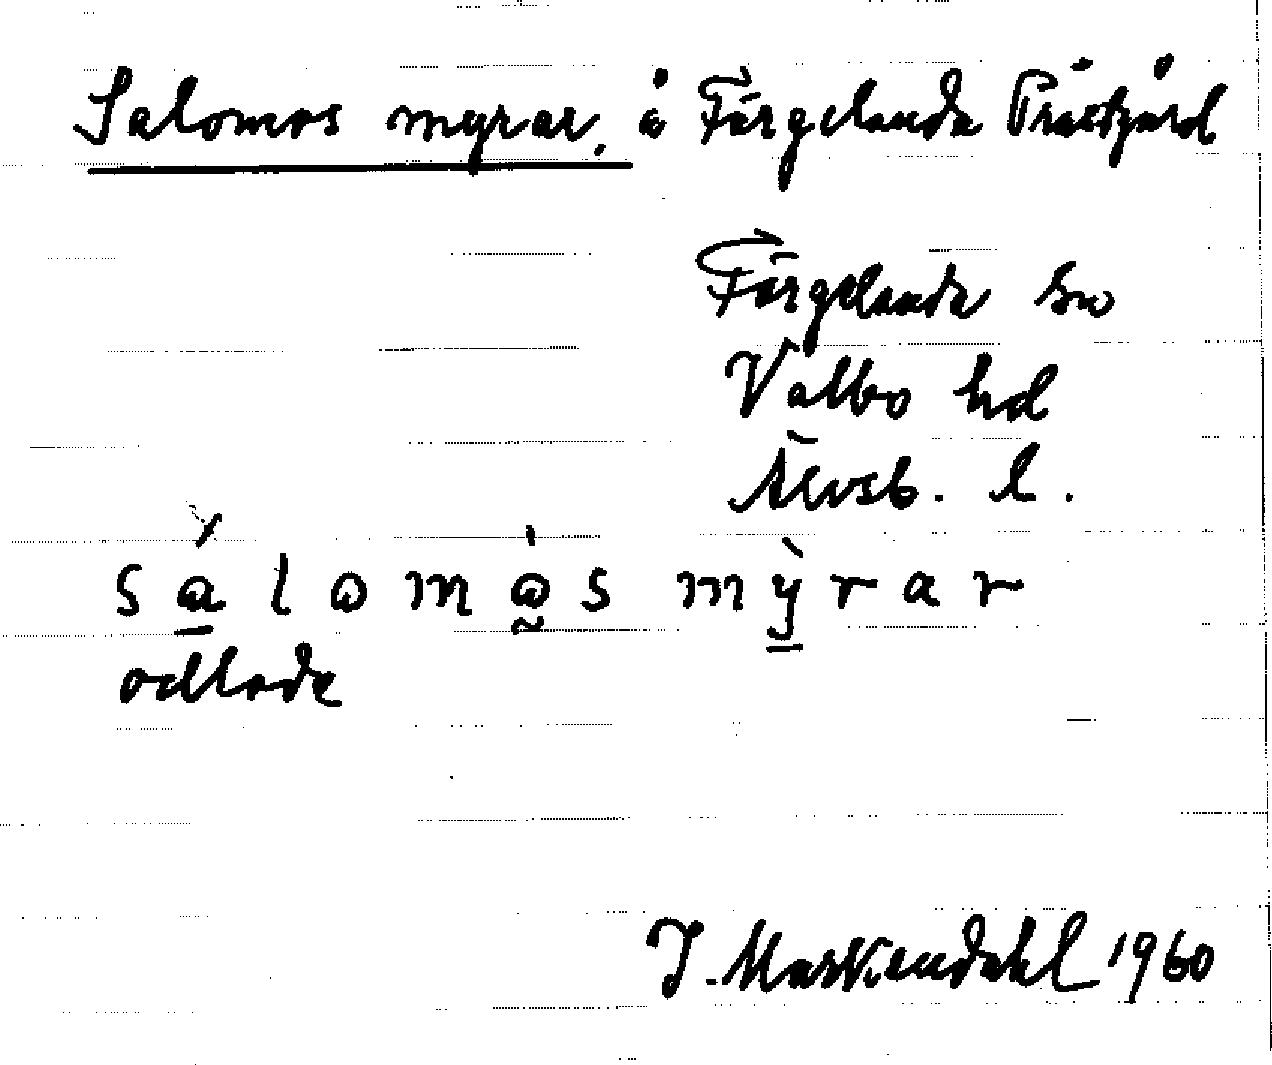 Salomos myrar, å Färgelanda Prästgård
Färgelanda sn
Valbo hd
Älvsb. l.
salomos myrar
odlade
J. Markendahl 1960